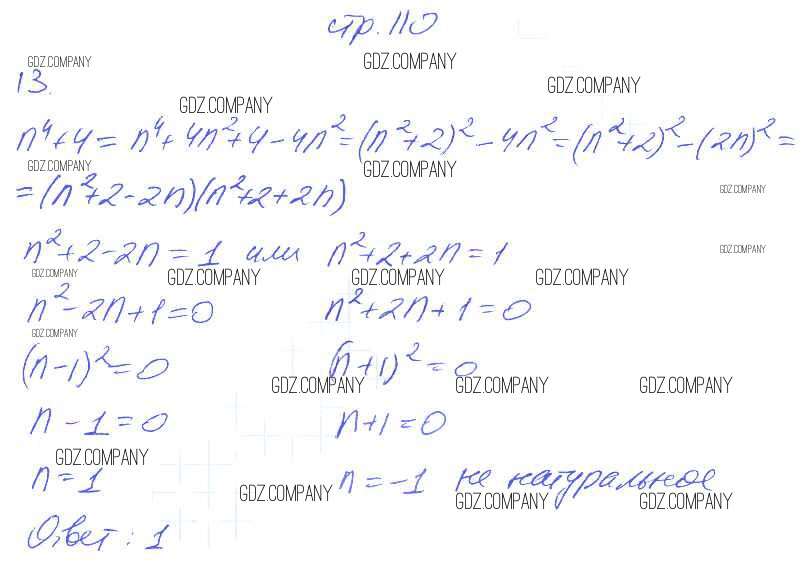 стр. 110
GDZ.COMPANY GDZ.COMPANY
13. GDZ.COMPANY
GDZ.COMPANY
n⁴+4 = n⁴+4n²+4-4n² = (n²+2)²-4n² = (n²+2)²-(2n)² =
GDZ.COMPANY GDZ.COMPANY
= (n²+2-2n)(n²+2+2n) GDZ.COMPANY
n²+2-2n = 1 или n²+2+2n = 1 GDZ.COMPANY
GDZ.COMPANY GDZ.COMPANY GDZ.COMPANY GDZ.COMPANY
n²-2n+1=0 n²+2n+1=0
GDZ.COMPANY
(n-1)²=0 (n+1)²=0
GDZ.COMPANY GDZ.COMPANY GDZ.COMPANY
n-1=0 n+1=0
GDZ.COMPANY
n=1 n=-1 не натуральное
GDZ.COMPANY GDZ.COMPANY GDZ.COMPANY
Ответ: 1